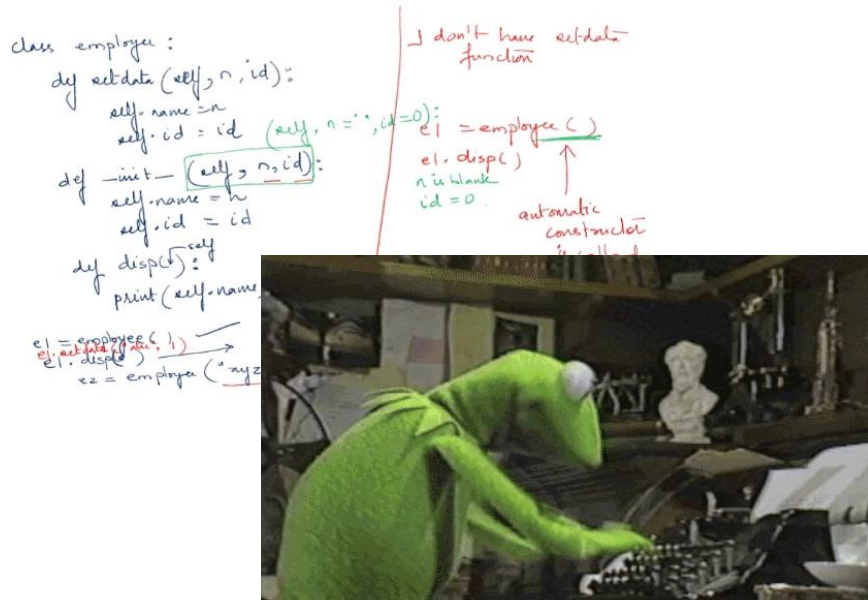 class employee :
def setdata (self, n, id):
self.name = n
self.id = id
(self, n = '', id = 0):
def __init__ (self, n, id):
self.name = n
self.id = id
def disp( ):
self
print (self.name,
e1 = employee ( )
e1.setdata( , 1)
e1.disp( )
e2 = employee ("xyz
I don't have setdata
function
e1 = employee ( )
e1.disp( )
n is blank
id = 0.
automatic
constructor